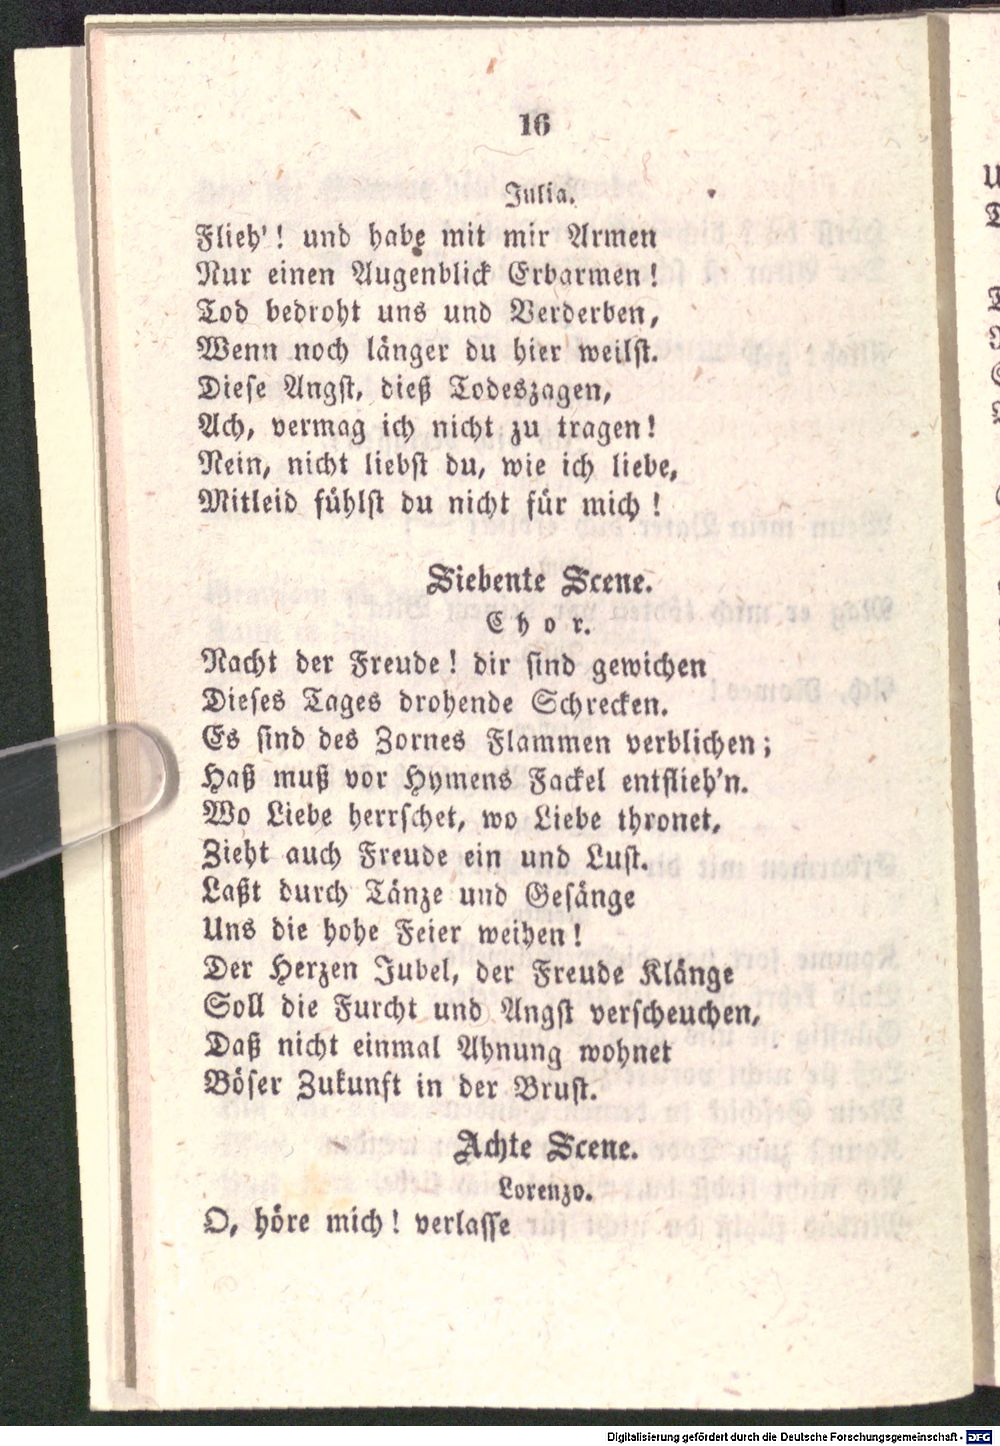 16
Julia.
Flieh'! und habe mit mir Armen
Nur einen Augenblick Erbarmen!
Tod bedroht uns und Verderben,
Wenn noch länger du hier weilst.
Diese Angst, dieß Todeszagen,
Ach, vermag ich nicht zu tragen!
Nein, nicht liebst du, wie ich liebe,
Mitleid fühlst du nicht für mich!
Siebente Scene.
Chor.
Nacht der Freude! dir sind gewichen
Dieses Tages drohende Schrecken.
Es sind des Zornes Flammen verblichen;
Haß muß vor Hymens Fackel entflieh'n.
Wo Liebe herrschet, wo Liebe thronet,
Zieht auch Freude ein und Lust.
Laßt durch Tänze und Gesänge
Uns die hohe Feier weihen!
Der Herzen Jubel, der Freude Klänge
Soll die Furcht und Angst verscheuchen,
Daß nicht einmal Ahnung wohnet
Böser Zukunft in der Brust.
Achte Scene.
Lorenzo.
O, höre mich! verlasse
Digitalisierung gefördert durch die Deutsche Forschungsgemeinschaft - DFG